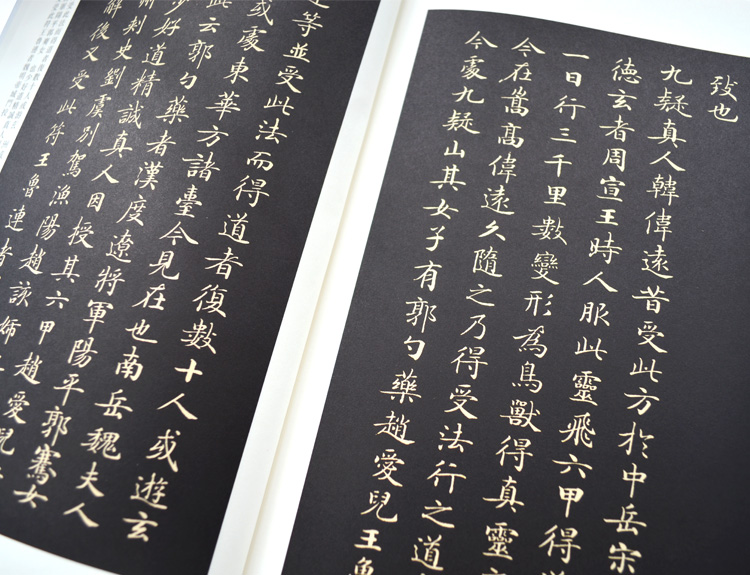 致也
九疑真人韓偉遠昔受此方於中岳宋
德玄者周宣王時人服此靈飛六甲得
一日行三千里數變形為鳥獸得真靈
今在嵩高偉遠久隨之乃得受法行之道
今處九疑山其女子有郭勺藥趙愛兒王魯
等並受此法而得道者復數十人或遊玄
或處東華方諸臺今見在也南岳魏夫人
此云郭勺藥者漢度遼將軍陽平郭騫女
少好道精誠真人因授其六甲趙愛兒
州刺史劉虞別駕漁陽趙該姊
解後又受此符王魯連者